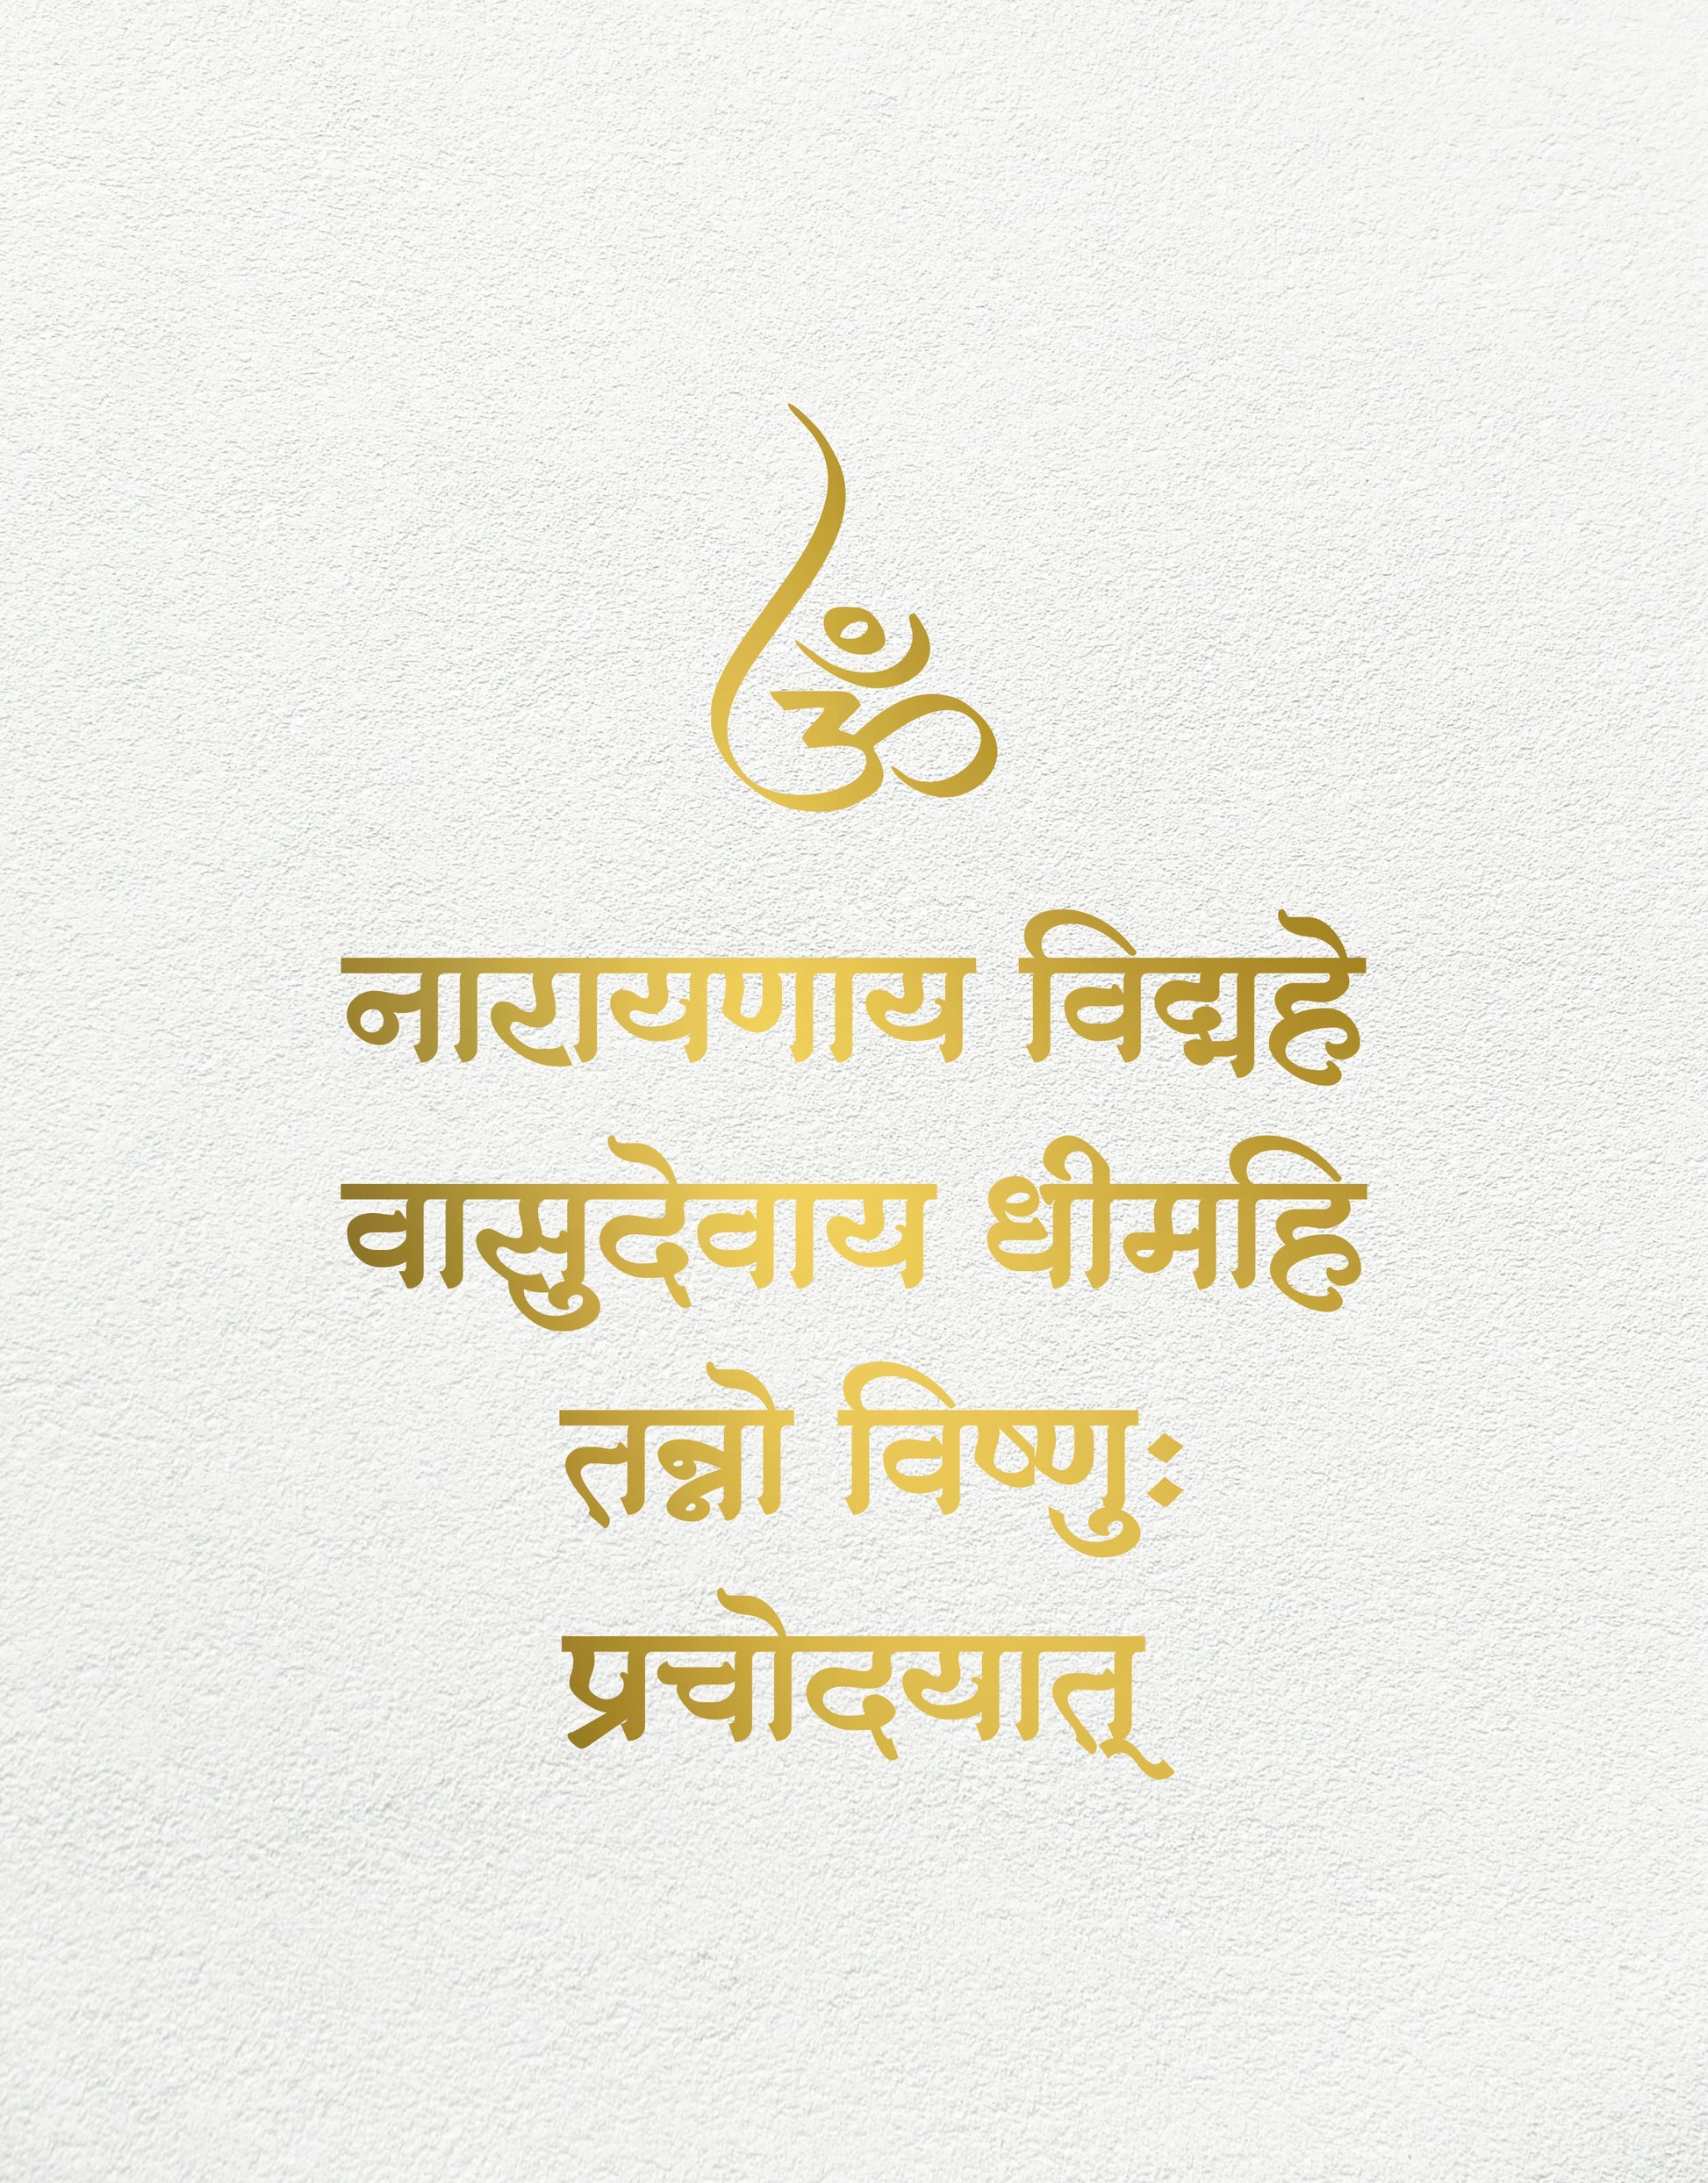 ॐ
नारायणाय विद्महे
वासुदेवाय धीमहि
तन्नो विष्णुः
प्रचोदयात्